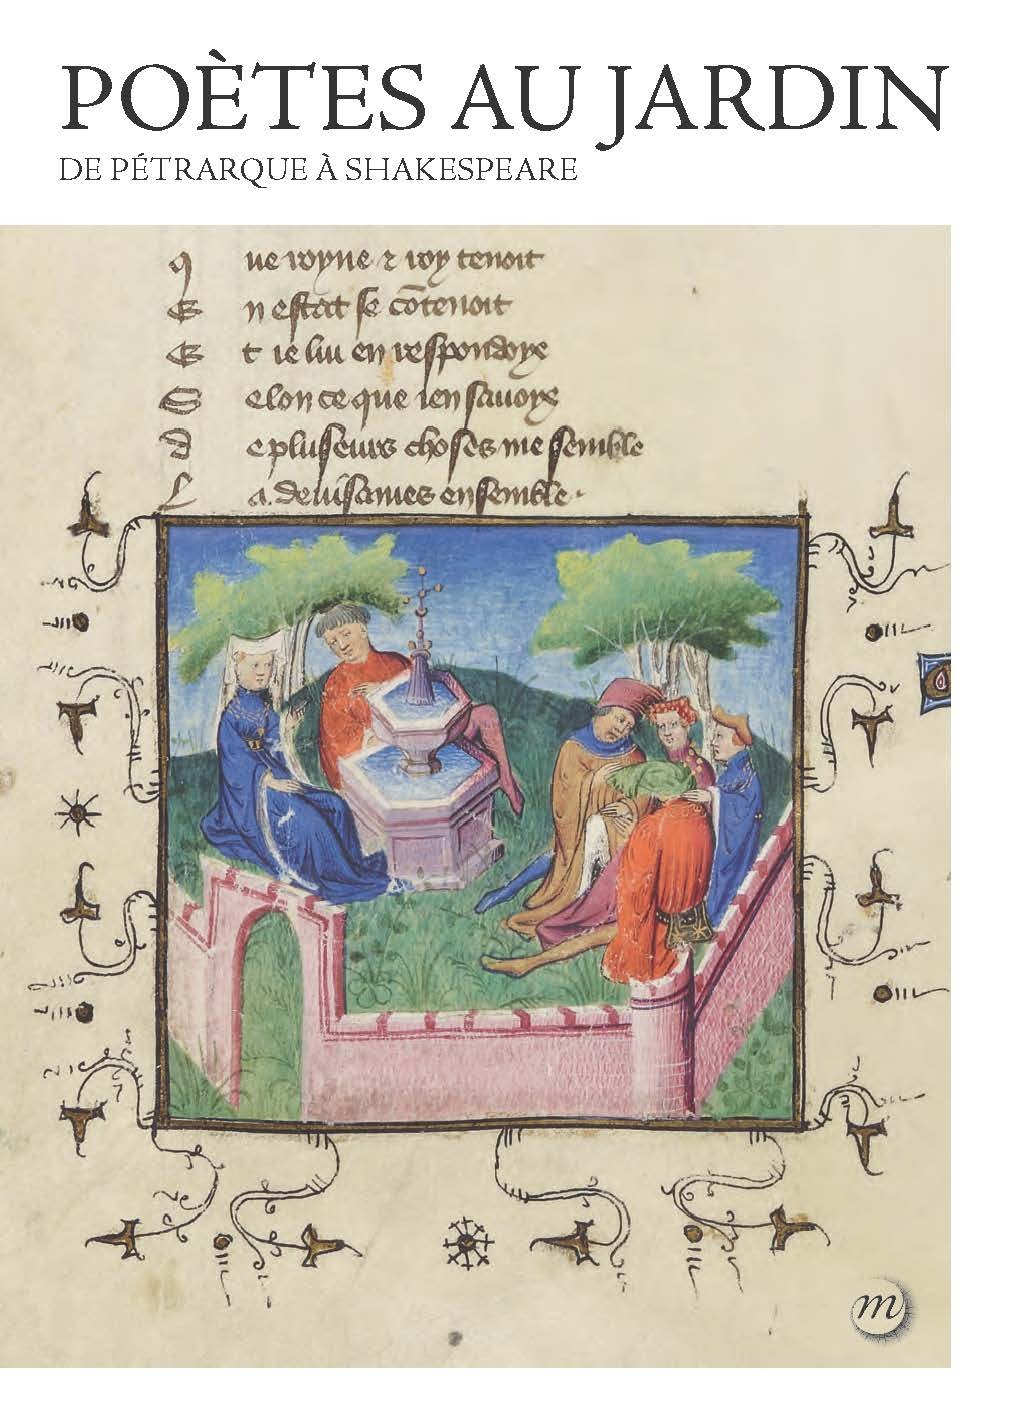 POÈTES AU JARDIN
DE PÉTRARQUE À SHAKESPEARE
q ue royne & roy tenoit
E n estat se cōtenoit
E t ie lui en respondoye
S elon ce que ien sauoye
d e pluseurs choses me semble
L a deuisames ensemble.
m